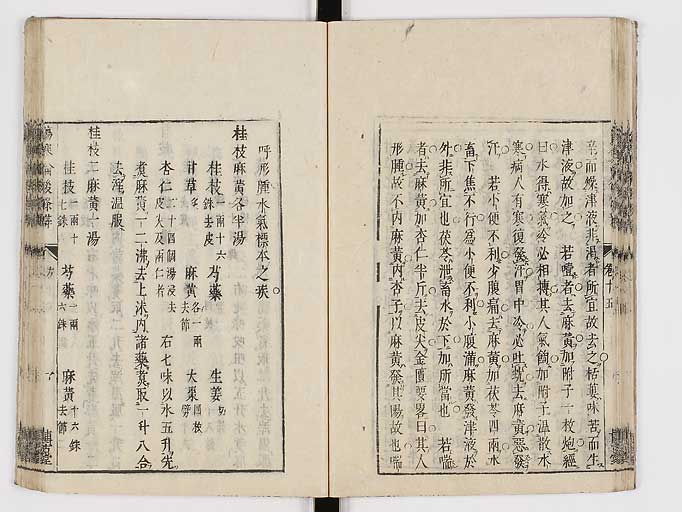 辛而燥津液非渴者所宜故去之栝蔞味苦而生
津液故加之　若噎者去麻黃加附子一枚炮經
曰水得寒氣冷必相搏其人氣餲加附子溫散水
寒病人有寒復發汗胃中冷必吐蚘去麻黃惡發
汗　若小便不利少腹滿去麻黃加茯苓四兩水
畜下焦不行爲小便不利少腹滿麻黃發津液於
外非所宜也茯苓泄畜水於下加所當也　若喘
者去麻黃加杏仁半斤去皮尖金匱要畧曰其人
形腫故不內麻黃內杏子以麻黃發其陽故也喘
卷十五
呼形腫水氣標本之疾
桂枝麻黃各半湯
桂枝一兩十六銖去皮　芍藥　生姜切
甘草炙　麻黃各一兩去節　大棗四枚擘
杏仁二十四個湯浸去皮尖及兩仁者　右七味以水五升先
煮麻黃一二沸去上沫內諸藥煮取一升八合
去滓溫服
桂枝二麻黃一湯
桂枝一兩十七銖　芍藥一兩六銖　麻黃十六銖去節
傷寒論後條辨